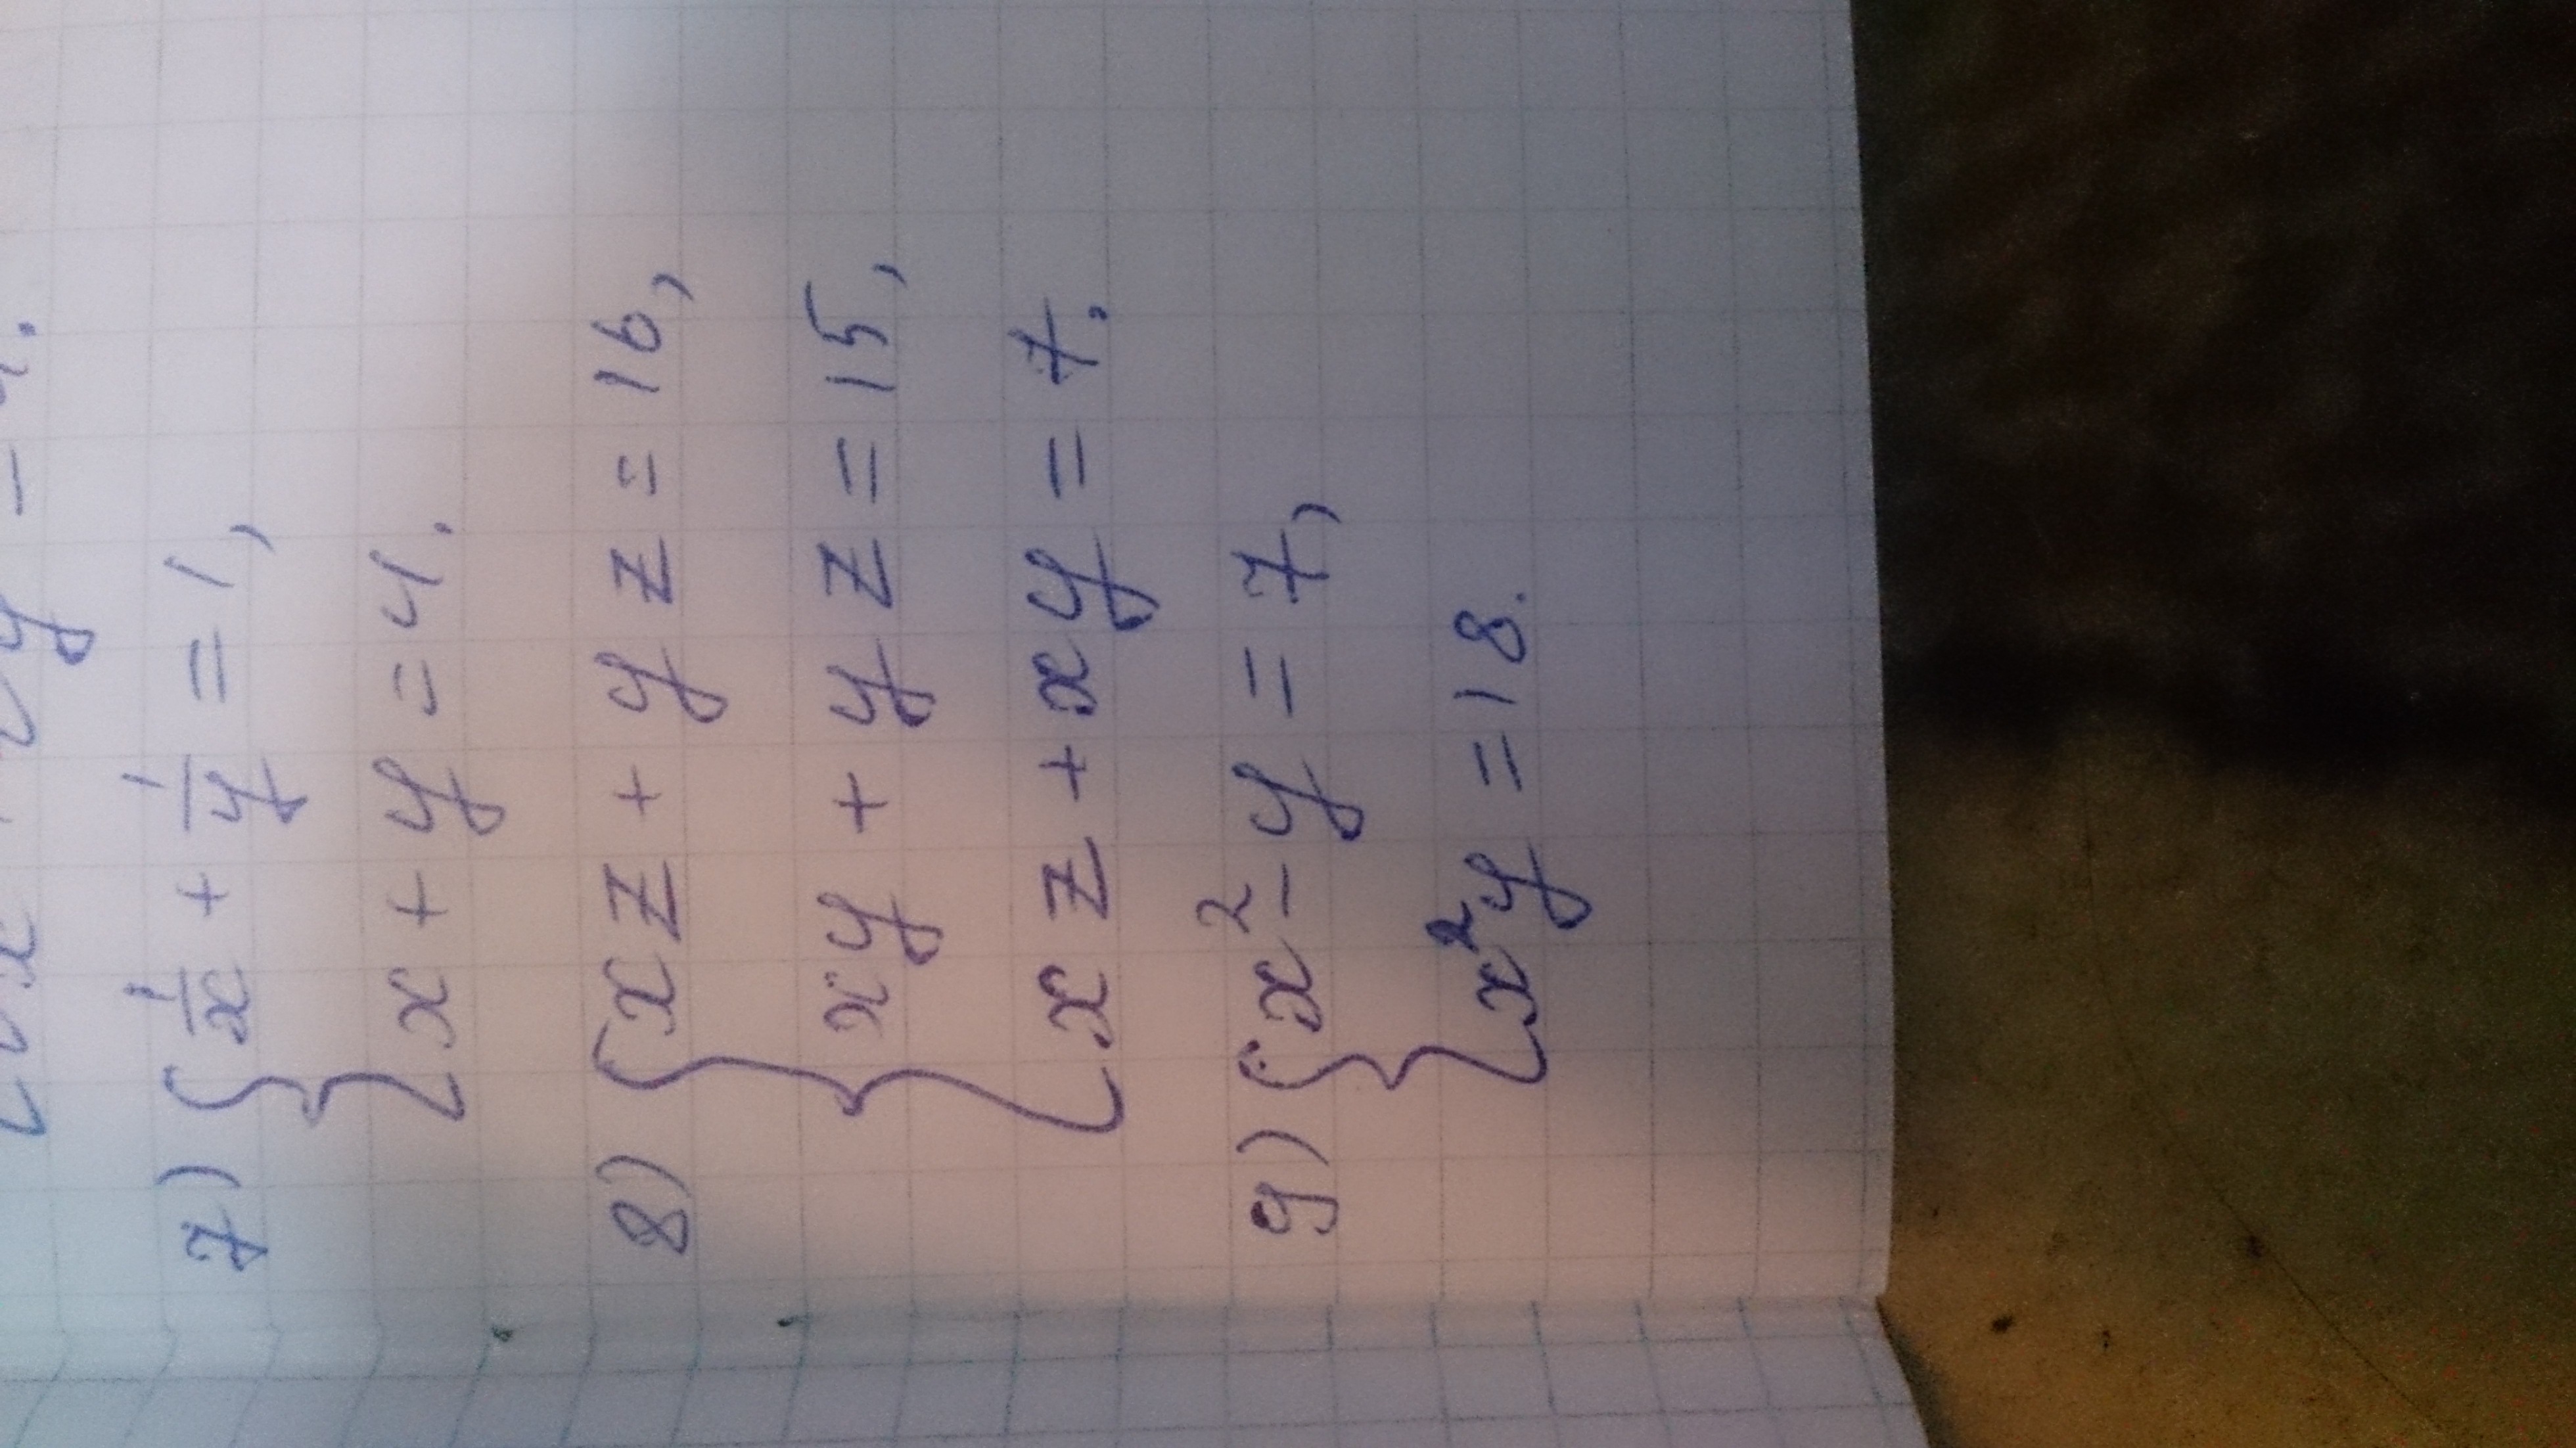 7) { 1/x + 1/y = 1,
x + y = 4.
8) { xz + yz = 16,
xy + yz = 15,
xz + xy = 7.
9) { x² - y = 7,
x²y = 18.